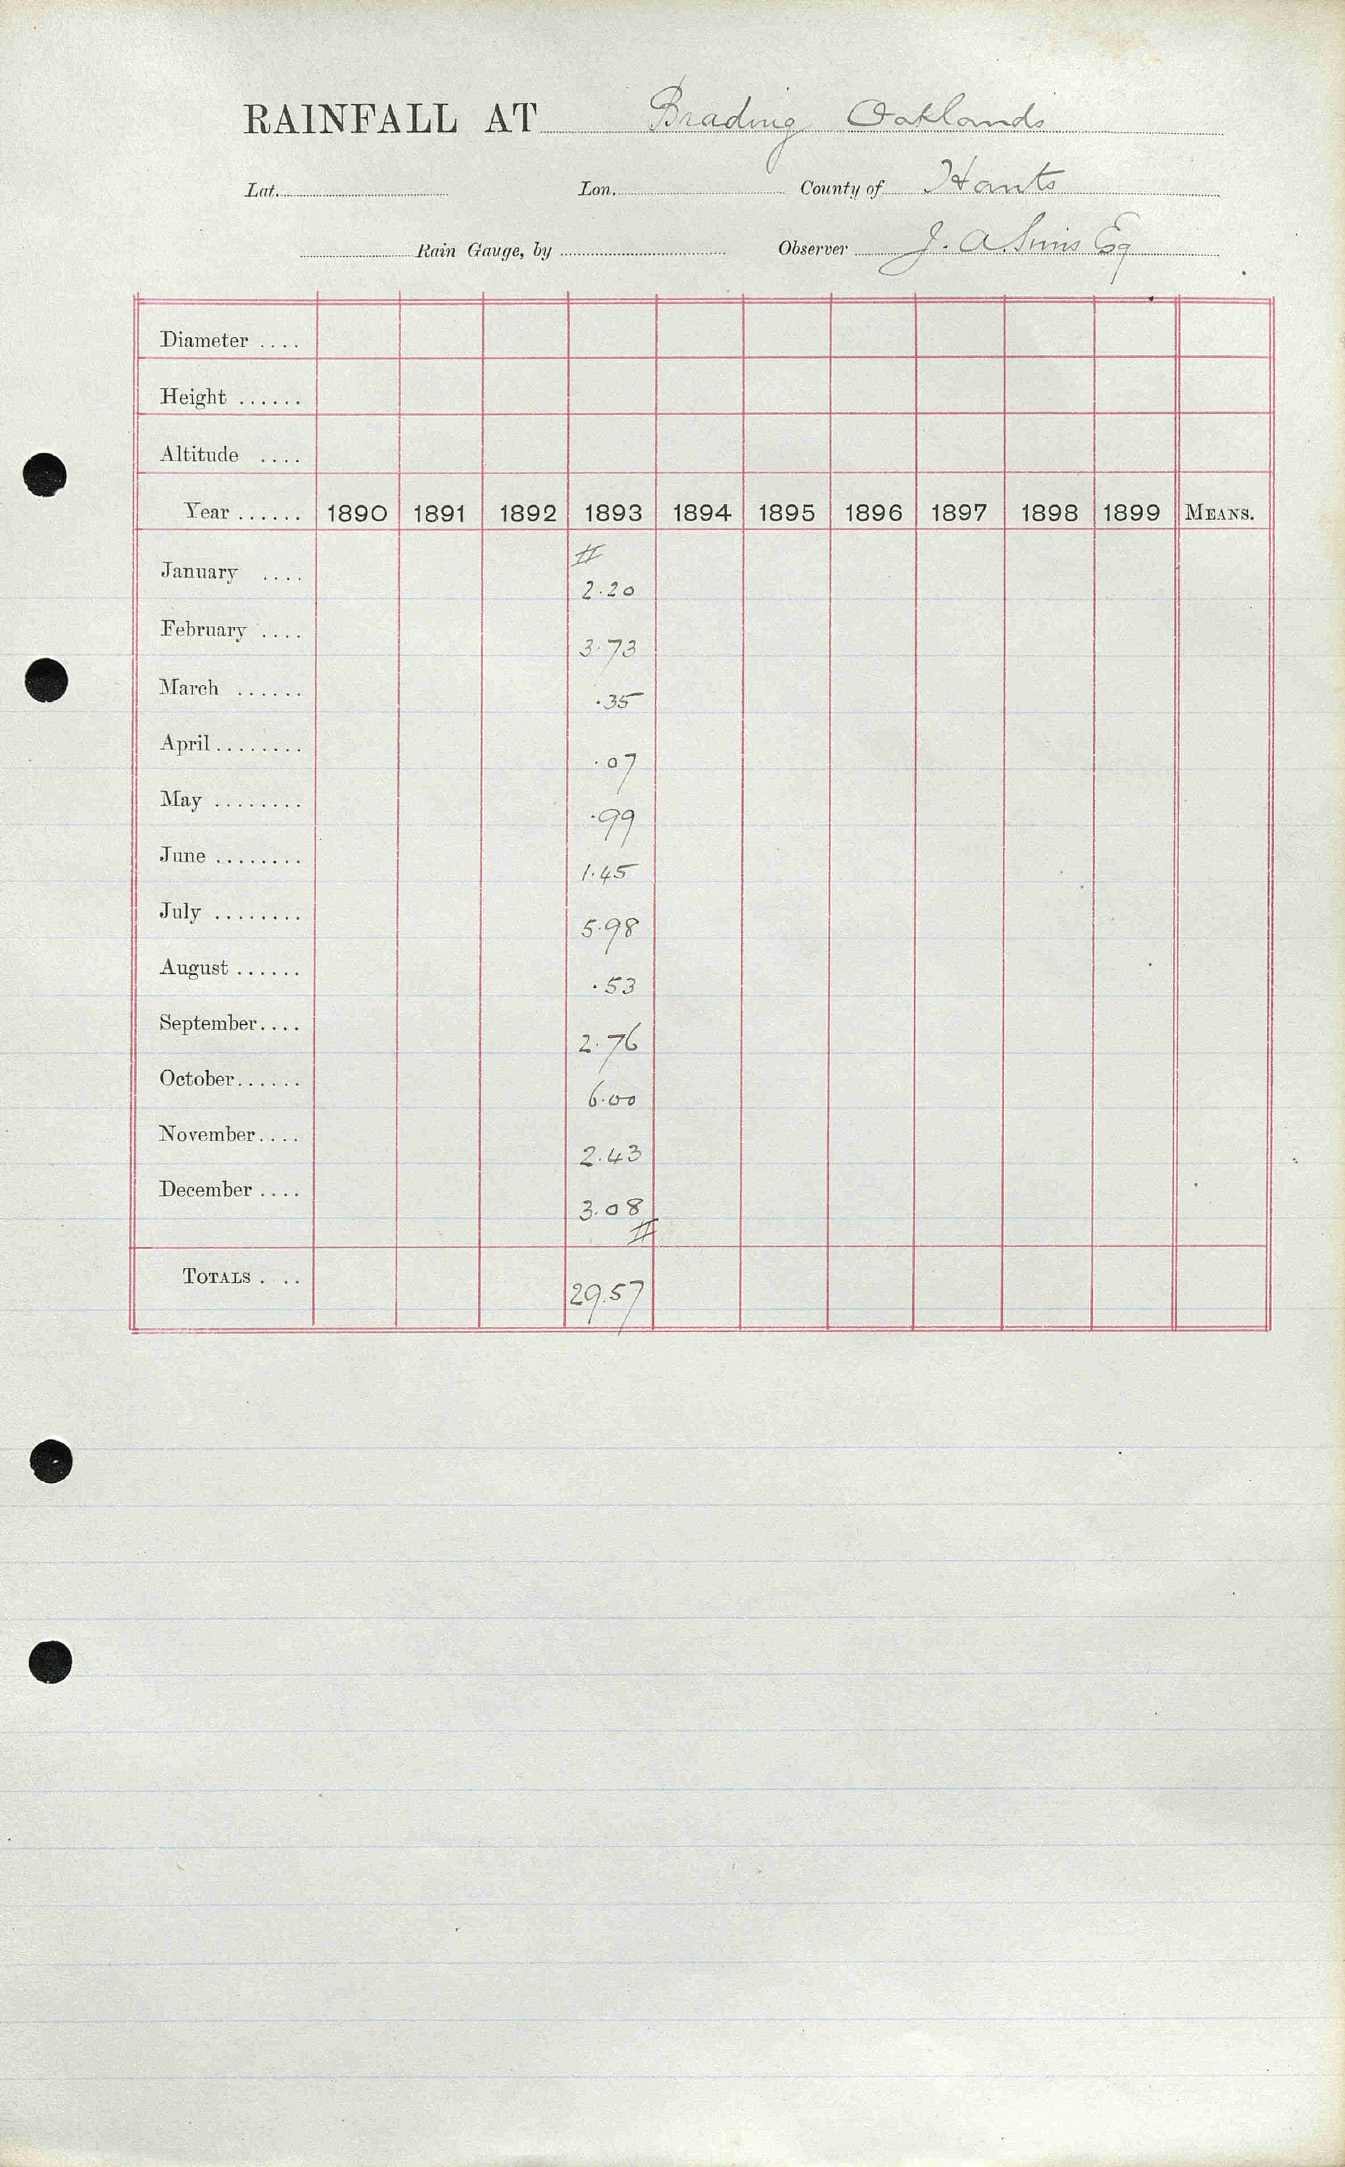 RAINFALL AT Brading Oaklands
Lat. Lon. County of Hants
Rain Gauge, by Observer J. A. Sims Esq
Diameter ....
Height ......
Altitude ....
Year ...... 1890 1891 1892 1893 1894 1895 1896 1897 1898 1899 MEANS.
#
January .... 2.20
February .... 3.73
March ...... .35
April ........ .07
May ........ .99
June ........ 1.45
July ........ 5.98
August ...... .53
September.... 2.76
October...... 6.00
November.... 2.43
December .... 3.08
#
TOTALS . .. 29.57